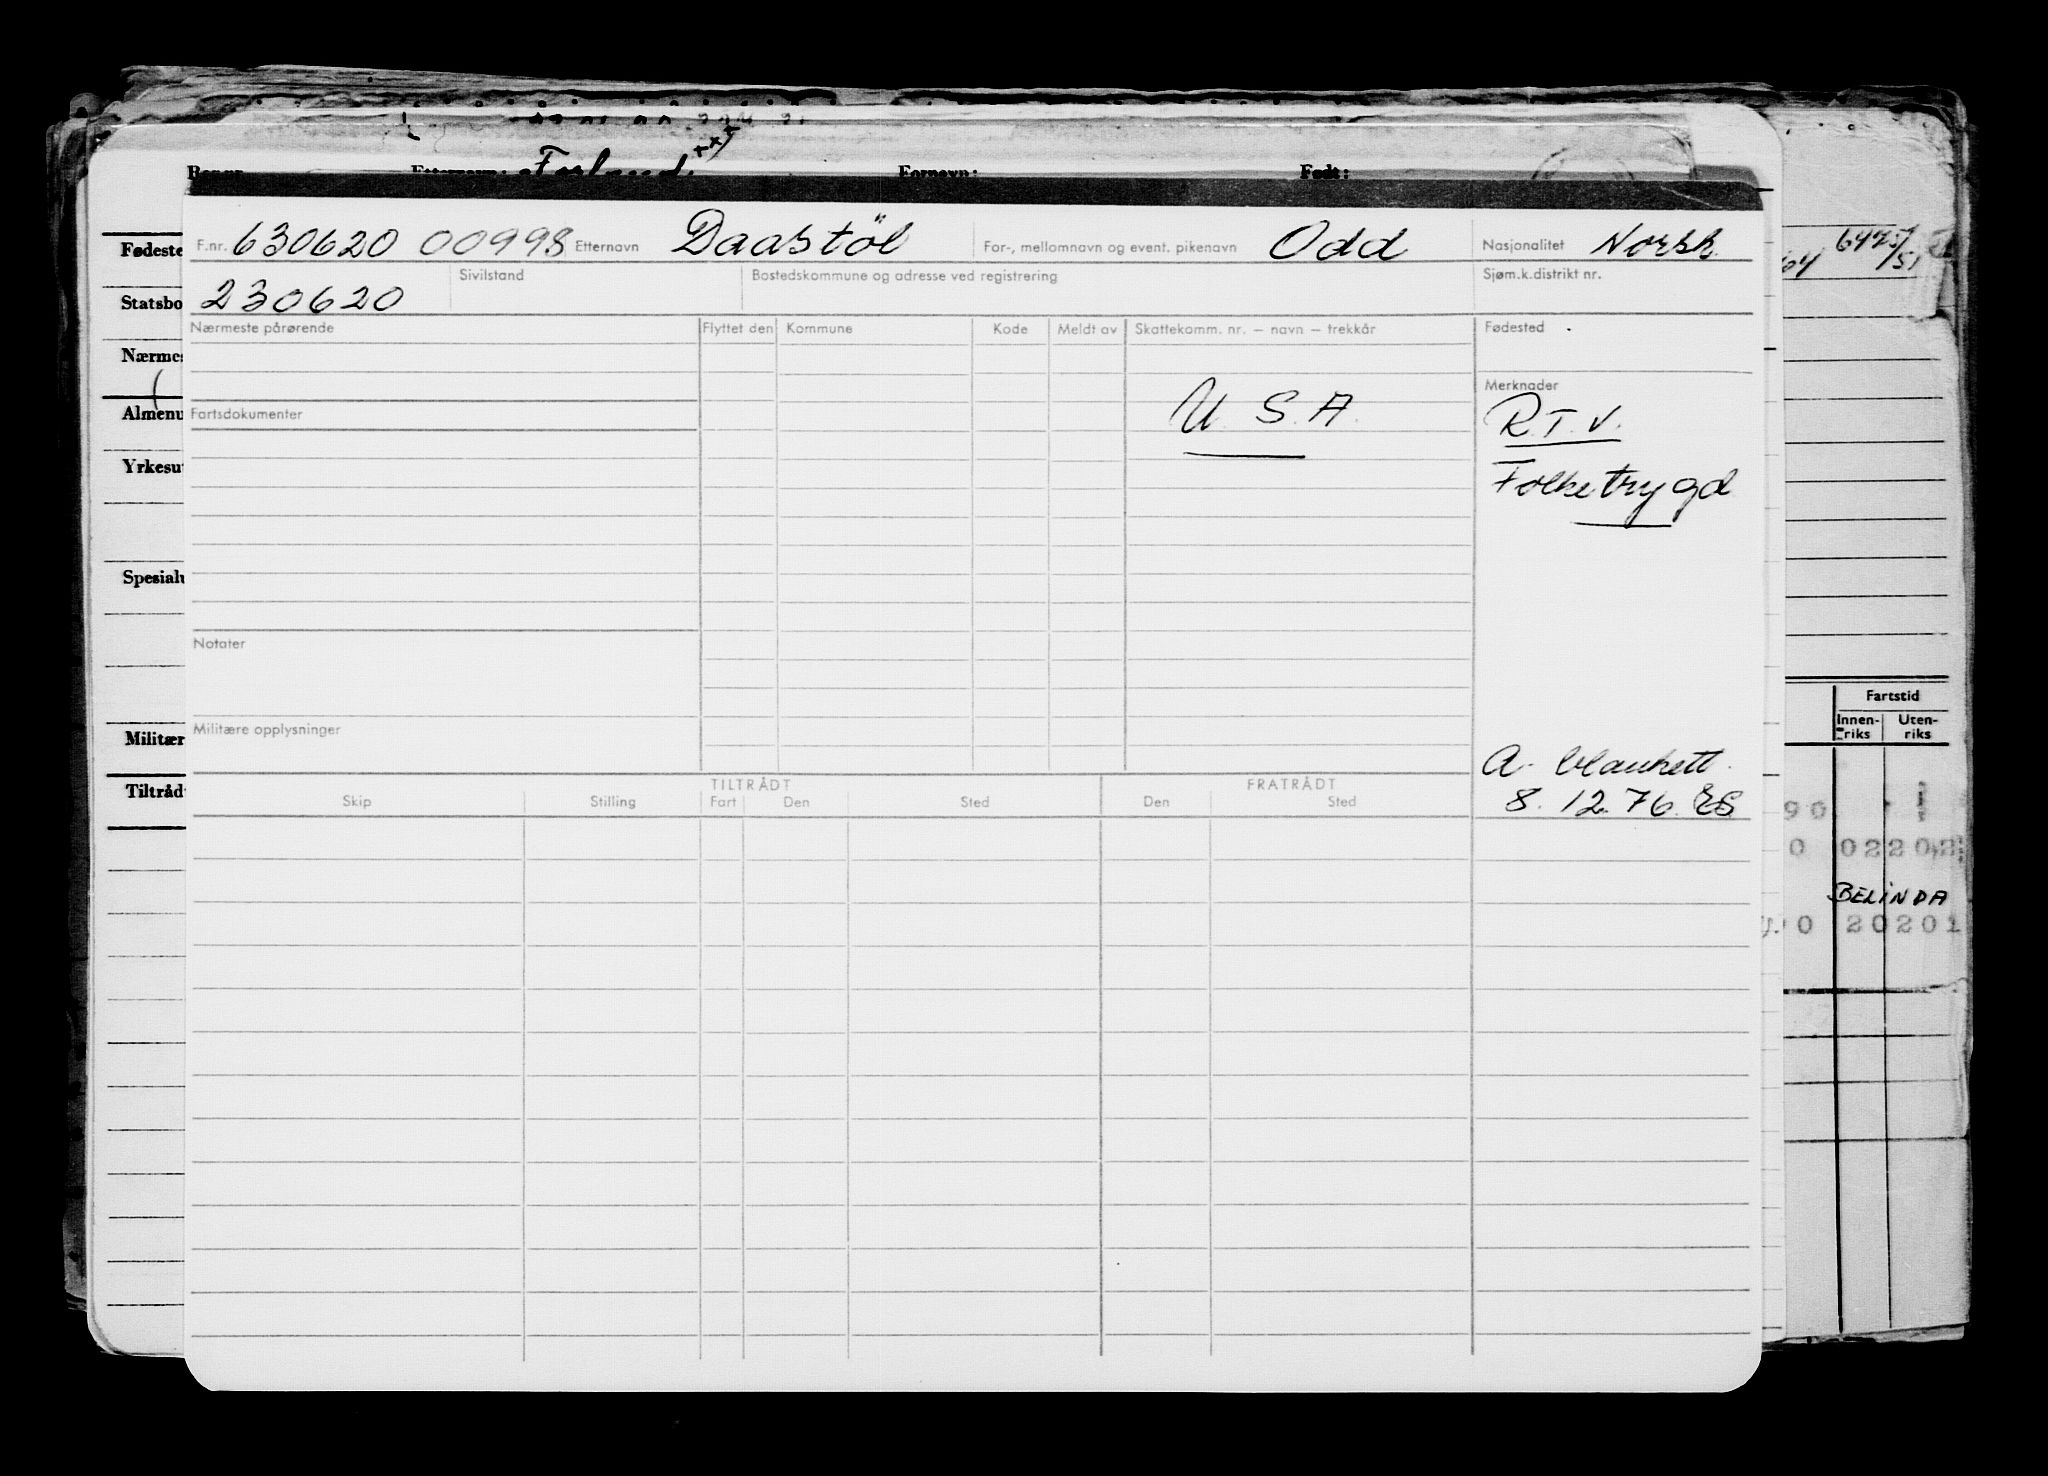 Etternavn: Forland xxx Fornavn: Født:
F.nr. 630620 00998 Etternavn Daastöl For-, mellomnavn og event. pikenavn Odd Nasjonalitet Norsk
230620 Sivilstand Bostedskommune og adresse ved registrering Sjøm.k.distrikt nr.
Nærmeste pårørende Flyttet den Kommune Kode Meldt av Skattekomm. nr. – navn – trekkår Fødested
Merknader
U.S.A. R.T.V.
Fartsdokumenter
Folketrygd
Notater
Militære opplysninger
A- blankett
8.12.76. ES
TILTRÅDT FRATRÅDT
Skip Stilling Fart Den Sted Den Sted
Fødeste
Statsbo
Nærmes
Almenu
Yrkesut
Spesialu
Militær
Tiltrådt
64 6475/51
Fartstid
Innen-riks Uten-riks
90
0 0220
BELINDA
0 20201